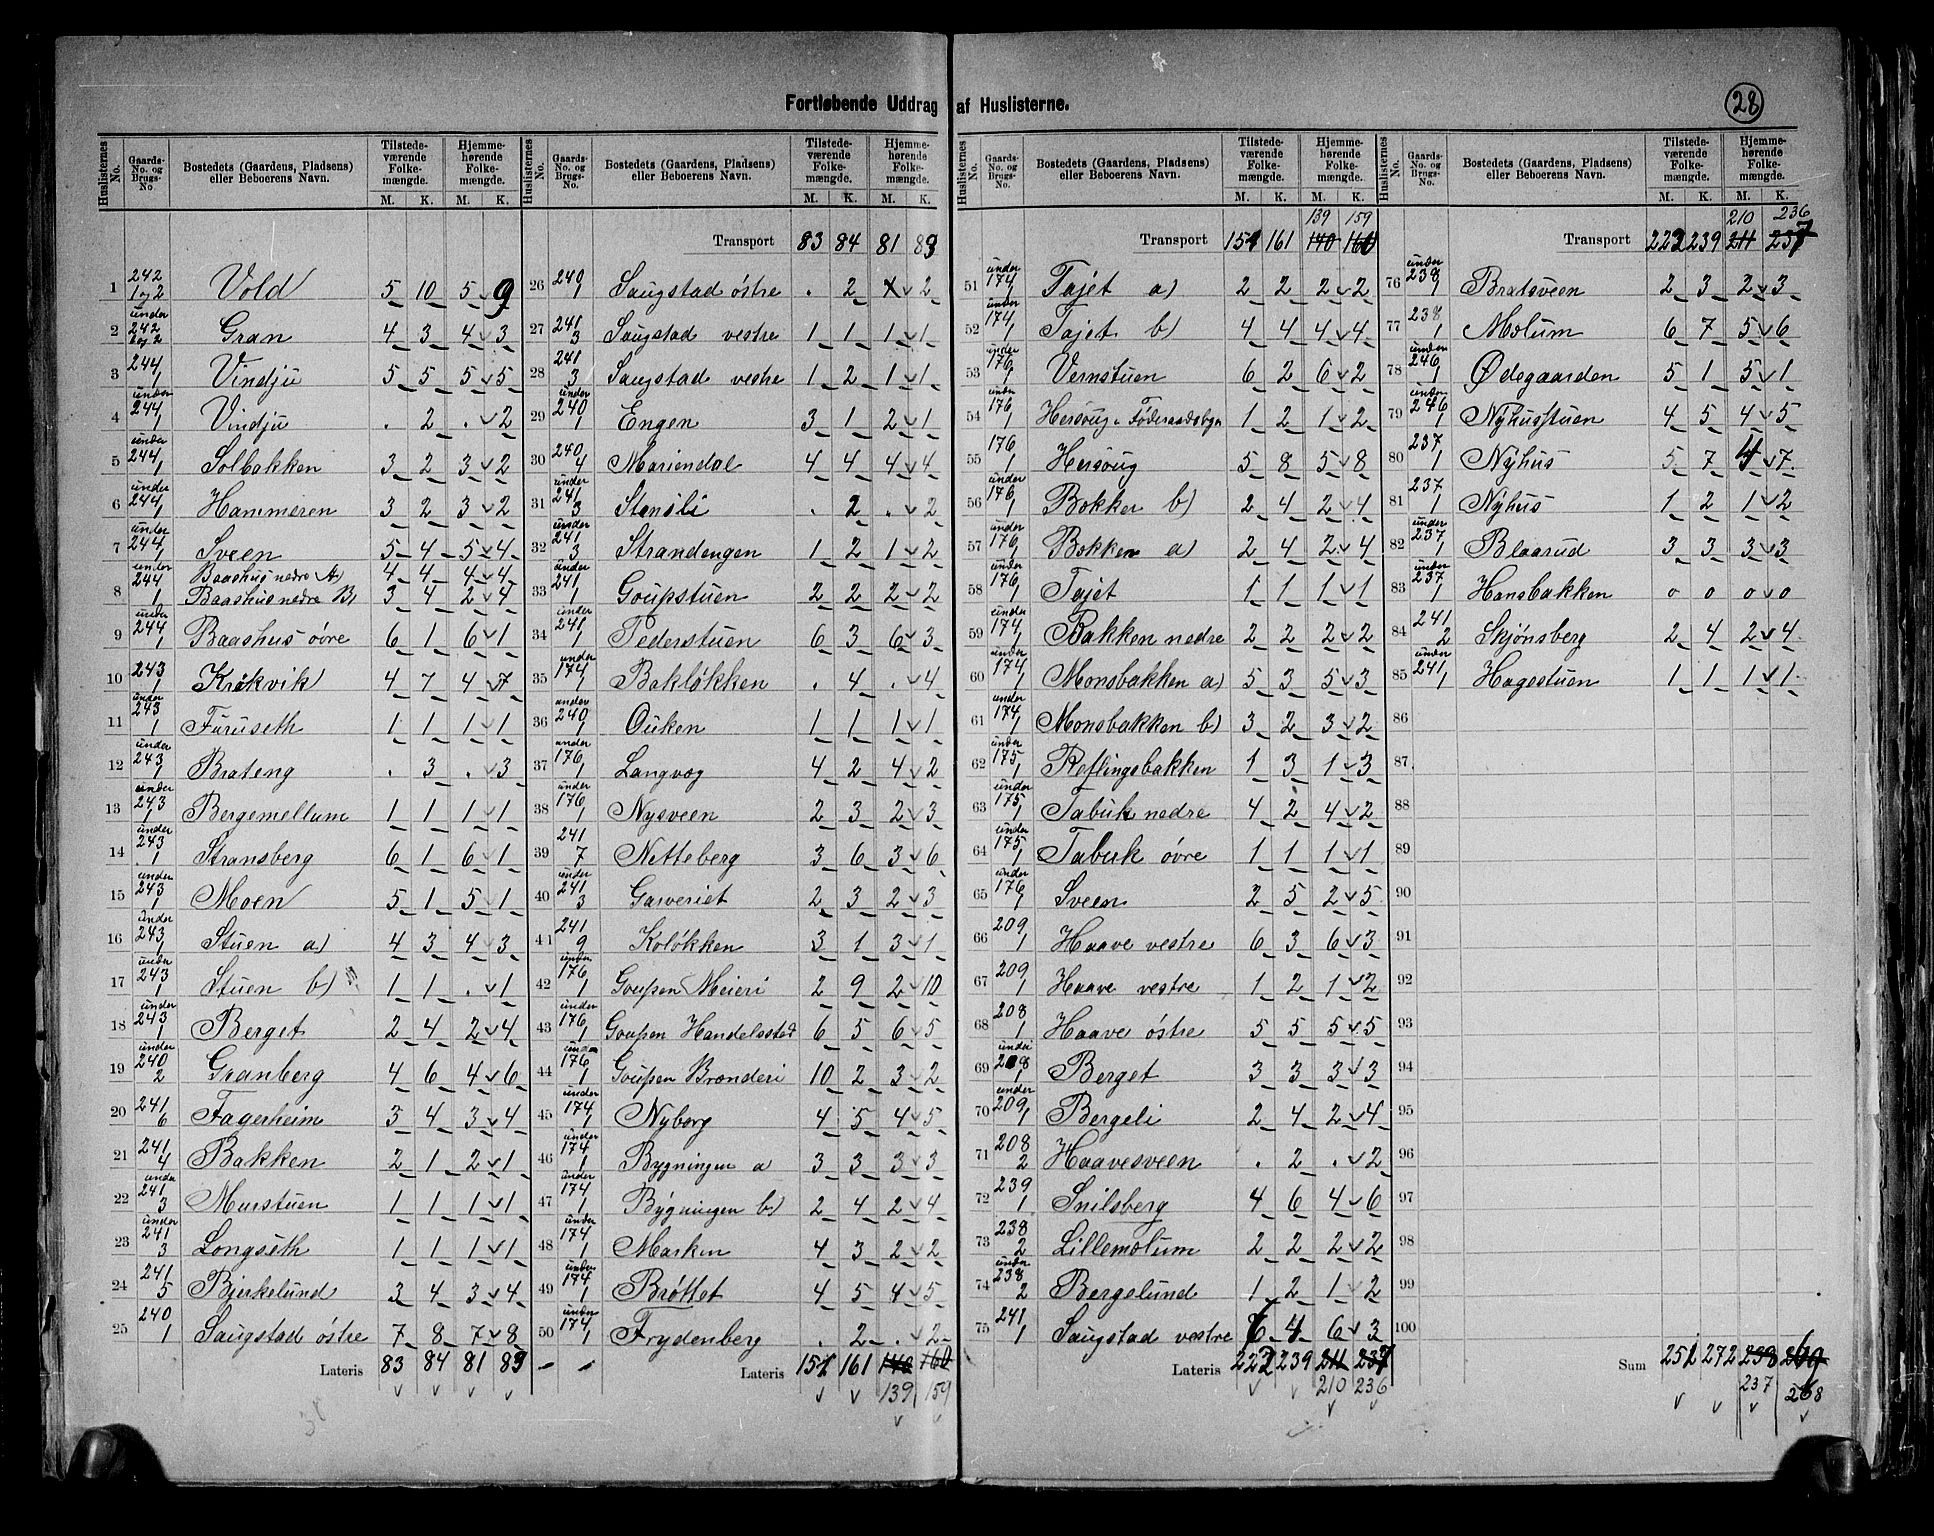 Fortløbende Uddrag af Huslisterne.
28
Huslisternes No. | Gaards-No. og Brugs-No. | Bostedets (Gaardens, Pladsens) eller Beboerens Navn. | Tilstedeværende Folkemængde. M. K. | Hjemmehørende Folkemængde. M. K.
1 242 1 og 2 Vold 5 10 5 9
2 under 242 1 og 2 Gran 4 3 4 3
3 244 1 Vindju 5 5 5 5
4 under 244 1 Vindju . 2 . 2
5 under 244 1 Solbakken 3 2 3 2
6 under 244 1 Hammeren 3 2 3 2
7 under 244 1 Sveen 5 4 5 4
8 under 244 1 Baashus nedre A) 4 4 4 4
Baashus nedre B) 3 4 2 4
9 under 244 1 Baashus øvre 6 1 6 1
10 243 1 Krøkvik 4 7 4 7
11 under 243 1 Furuseth 1 1 1 1
12 under 243 1 Brateng . 3 . 3
13 under 243 1 Bergemellum 1 1 1 1
14 under 243 1 Stransberg 6 1 6 1
15 under 243 1 Moen 5 1 5 1
16 under 243 1 Stuen a) 4 3 4 3
17 under 243 1 Stuen b) 1 1 . 1
18 under 243 1 Berget 2 4 2 4
19 under 240 2 Granberg 4 6 4 6
20 241 6 Fagerheim 3 4 3 4
21 241 4 Bakken 2 1 2 1
22 under 241 3 Murstuen 1 1 1 1
23 under 241 3 Longseth 1 1 1 1
24 241 5 Bjerkelund 3 4 3 4
25 240 1 Saugstad østre 7 8 7 8
Lateris 83 84 81 83
Huslisternes No. | Gaards-No. og Brugs-No. | Bostedets (Gaardens, Pladsens) eller Beboerens Navn. | Tilstedeværende Folkemængde. M. K. | Hjemmehørende Folkemængde. M. K.
Transport 83 84 81 83
26 240 1 Saugstad østre . 2 2
27 241 3 Saugstad vestre 1 1 1 1
28 241 3 Saugstad vestre 1 2 1 1
29 under 240 1 Engen 3 1 2 1
30 240 4 Mariendal 4 4 4 4
31 under 241 3 Stensli . 2 . 2
32 under 241 3 Strandengen 1 2 1 2
33 under 241 1 Goupstuen 2 2 2 2
34 under 241 1 Pederstuen 6 3 6 3
35 under 174 1 Bakløkken . 4 . 4
36 under 240 1 Ouken 1 1 1 1
37 under 176 1 Langvog 4 2 4 2
38 under 176 1 Nysveen 2 3 2 3
39 241 7 Netteberg 3 6 3 6
40 under 241 3 Garveriet 2 3 2 3
41 241 9 Koløkken 3 1 3 1
42 under 176 1 Goupen Meieri 2 9 2 10
43 under 176 1 Goupen Handelsstad 6 5 6 5
44 under 176 1 Goupen Brænderi 10 2 3 2
45 under 174 1 Nyborg 4 5 4 5
46 under 174 1 Bygningen a 3 3 3 3
47 under 174 1 Bygningen b) 2 4 2 4
48 under 174 1 Marken 4 3 2 2
49 under 174 1 Brøttet 4 5 4 5
50 under 174 1 Frydenberg . 2 . 2
Lateris 151 161 140 160
139 159
Huslisternes No. | Gaards-No. og Brugs-No. | Bostedets (Gaardens, Pladsens) eller Beboerens Navn. | Tilstedeværende Folkemængde. M. K. | Hjemmehørende Folkemængde. M. K.
139 159
Transport 151 161 140 160
51 under 174 1 Tajet a) 2 2 2 2
52 under 174 1 Tajet b) 4 4 4 4
53 under 176 1 Vernstuen 6 2 6 2
54 under 176 1 Hersoug Føderaadsbyg 1 2 1 2
55 176 1 Hersoug 5 8 5 8
56 under 176 1 Bokken b) 2 4 2 4
57 under 176 1 Bokken a) 2 4 2 4
58 under 176 1 Tajet 1 1 1 1
59 under 174 1 Bakken nedre 2 2 2 2
60 under 174 1 Monsbakken a) 5 3 5 3
61 under 174 1 Monsbakken b) 3 2 3 2
62 under 175 1 Reflingsbakken 1 3 1 3
63 under 175 1 Tabuk nedre 4 2 4 2
64 under 175 1 Tabuk øvre 1 1 1 1
65 under 176 1 Sveen 2 5 2 5
66 209 1 Haave vestre 6 3 6 3
67 209 1 Haave vestre 1 2 1 2
68 208 1 Haave østre 5 5 5 5
69 under 208 1 Berget 3 3 3 3
70 under 209 1 Bergeli 2 4 2 4
71 208 2 Haavesveen . 2 . 2
72 239 1 Snilsberg 4 6 4 6
73 238 2 Lillemolum 2 2 2 2
74 under 238 2 Bergelund 1 2 1 2
75 241 1 Saugstad vestre 6 4 6 3
Lateris 222 239 211 237
210 236
Huslisternes No. | Gaards-No. og Brugs-No. | Bostedets (Gaardens, Pladsens) eller Beboerens Navn. | Tilstedeværende Folkemængde. M. K. | Hjemmehørende Folkemængde. M. K.
210 236
Transport 222 239 211 237
76 under 238 1 Bratsveen 2 3 2 3
77 238 1 Molum 6 7 5 6
78 under 246 1 Ødegaarden 5 1 5 1
79 under 246 1 Nyhusstuen 4 5 4 5
80 237 1 Nyhus 5 7 4 7
81 237 1 Nyhus 1 2 1 2
82 under 237 1 Blaarud 3 3 3 3
83 under 237 1 Hansbakken 0 0 0 0
84 241 2 Skjønsberg 2 4 2 4
85 under 241 1 Hagestuen 1 1 1 1
86
87
88
89
90
91
92
93
94
95
96
97
98
99
100
Sum 251 272 238 269
237 268